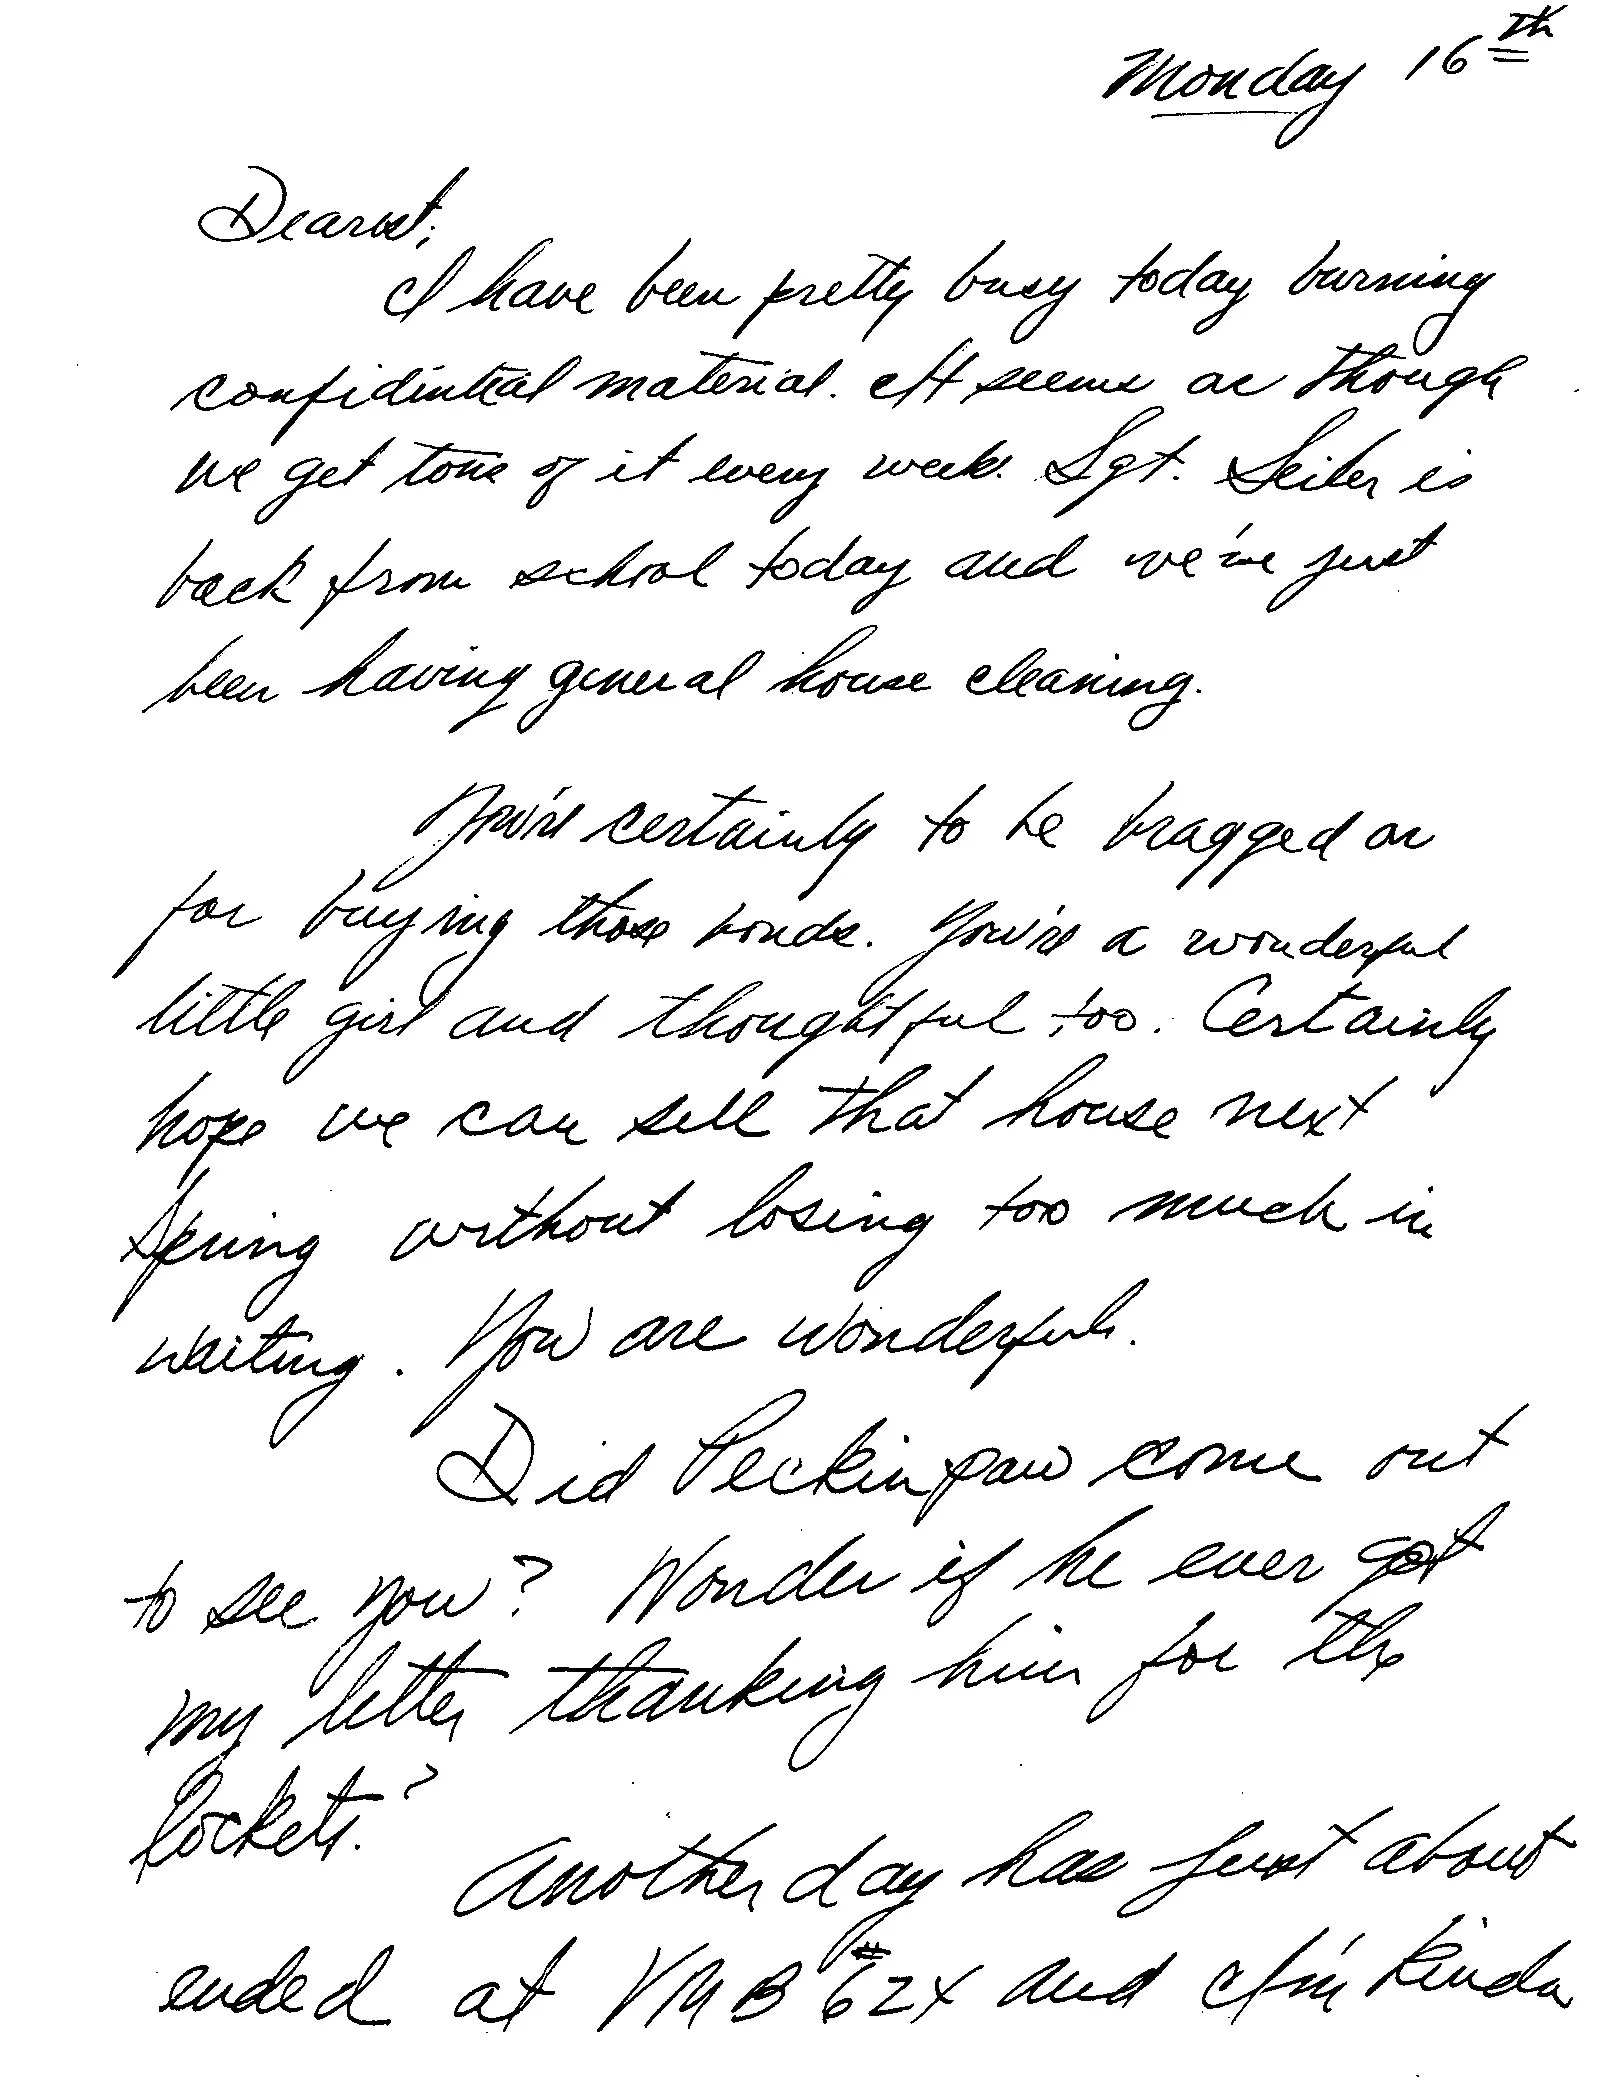 Monday 16th
Dearest;
I have been pretty busy today burning
confidintial material. It seems as though
we get tons of it every week. Sgt. Seiler is
back from school today and we've just
been having general house cleaning.
You're certainly to be bragged on
for buying those bonds. You're a wonderful
little girl and thoughtful too. Certainly
hope we can sell that house next
Spring without losing too much in
waiting. You are wonderful.
Did Peckinpaw come out
to see you? Wonder if he ever got
my letter thanking him for the
lockets.?
Another day has just about
ended at VMB #624 and I'm kinda